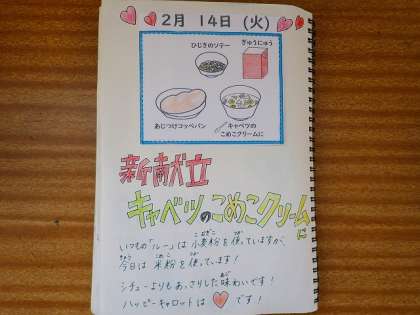 2月 14日 (火)
ひじきのソテー
ぎゅうにゅう
あじつけコッペパン
キャベツの
こめこクリームに
新献立
キャベツのこめこクリームに
いつもの「ルー」は小麦粉を使っていますが、
今日は米粉を使っています!
シチューよりもあっさりした味わいです!
ハッピーキャロットは♡です!